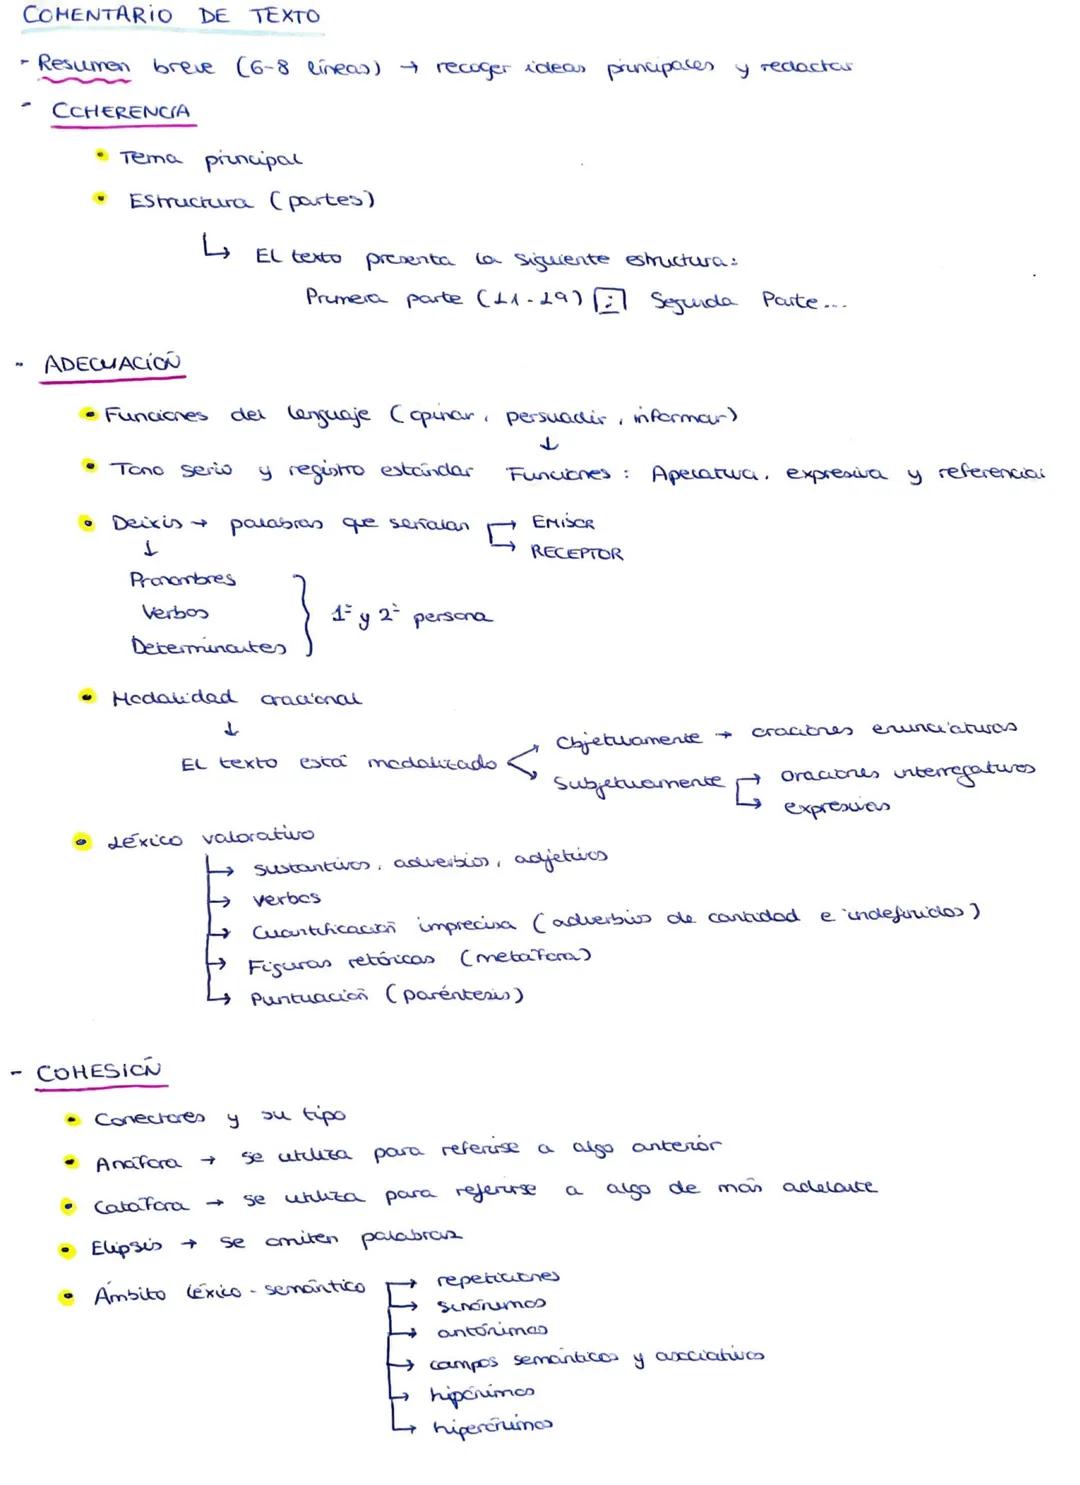 COMENTARIO DE TEXTO
- Resumen breve (6-8 líneas) → recoger ideas principales y redactar
- COHERENCIA
• Tema principal
• Estructura (partes)
↳ El texto presenta la siguiente estructura:
Primera parte (L1-L9) : Segunda Parte...
- ADECUACIÓN
• Funciones del lenguaje (opinar, persuadir, informar)
↓
• Tono serio y registro estándar Funciones: Apelativa, expresiva y referencial
• Deixis → palabras que señalan → EMISOR
↓ → RECEPTOR
Pronombres
Verbos } 1ª y 2ª persona
Determinantes
• Modalidad oracional
↓
Objetivamente → oraciones enunciativas
El texto está modalizado
Subjetivamente → oraciones interrogativas
→ expresivas
• Léxico valorativo
→ sustantivos, adverbios, adjetivos
→ verbos
→ Cuantificación imprecisa (adverbios de cantidad e indefinidos)
→ Figuras retóricas (metáfora)
→ Puntuación (paréntesis)
- COHESIÓN
• Conectores y su tipo
• Anáfora → se utiliza para referirse a algo anterior
• Catáfora → se utiliza para referirse a algo de más adelante
• Elipsis → se omiten palabras
• Ámbito léxico-semántico → repeticiones
→ sinónimos
→ antónimos
→ campos semánticos y asociativos
→ hipónimos
→ hiperónimos